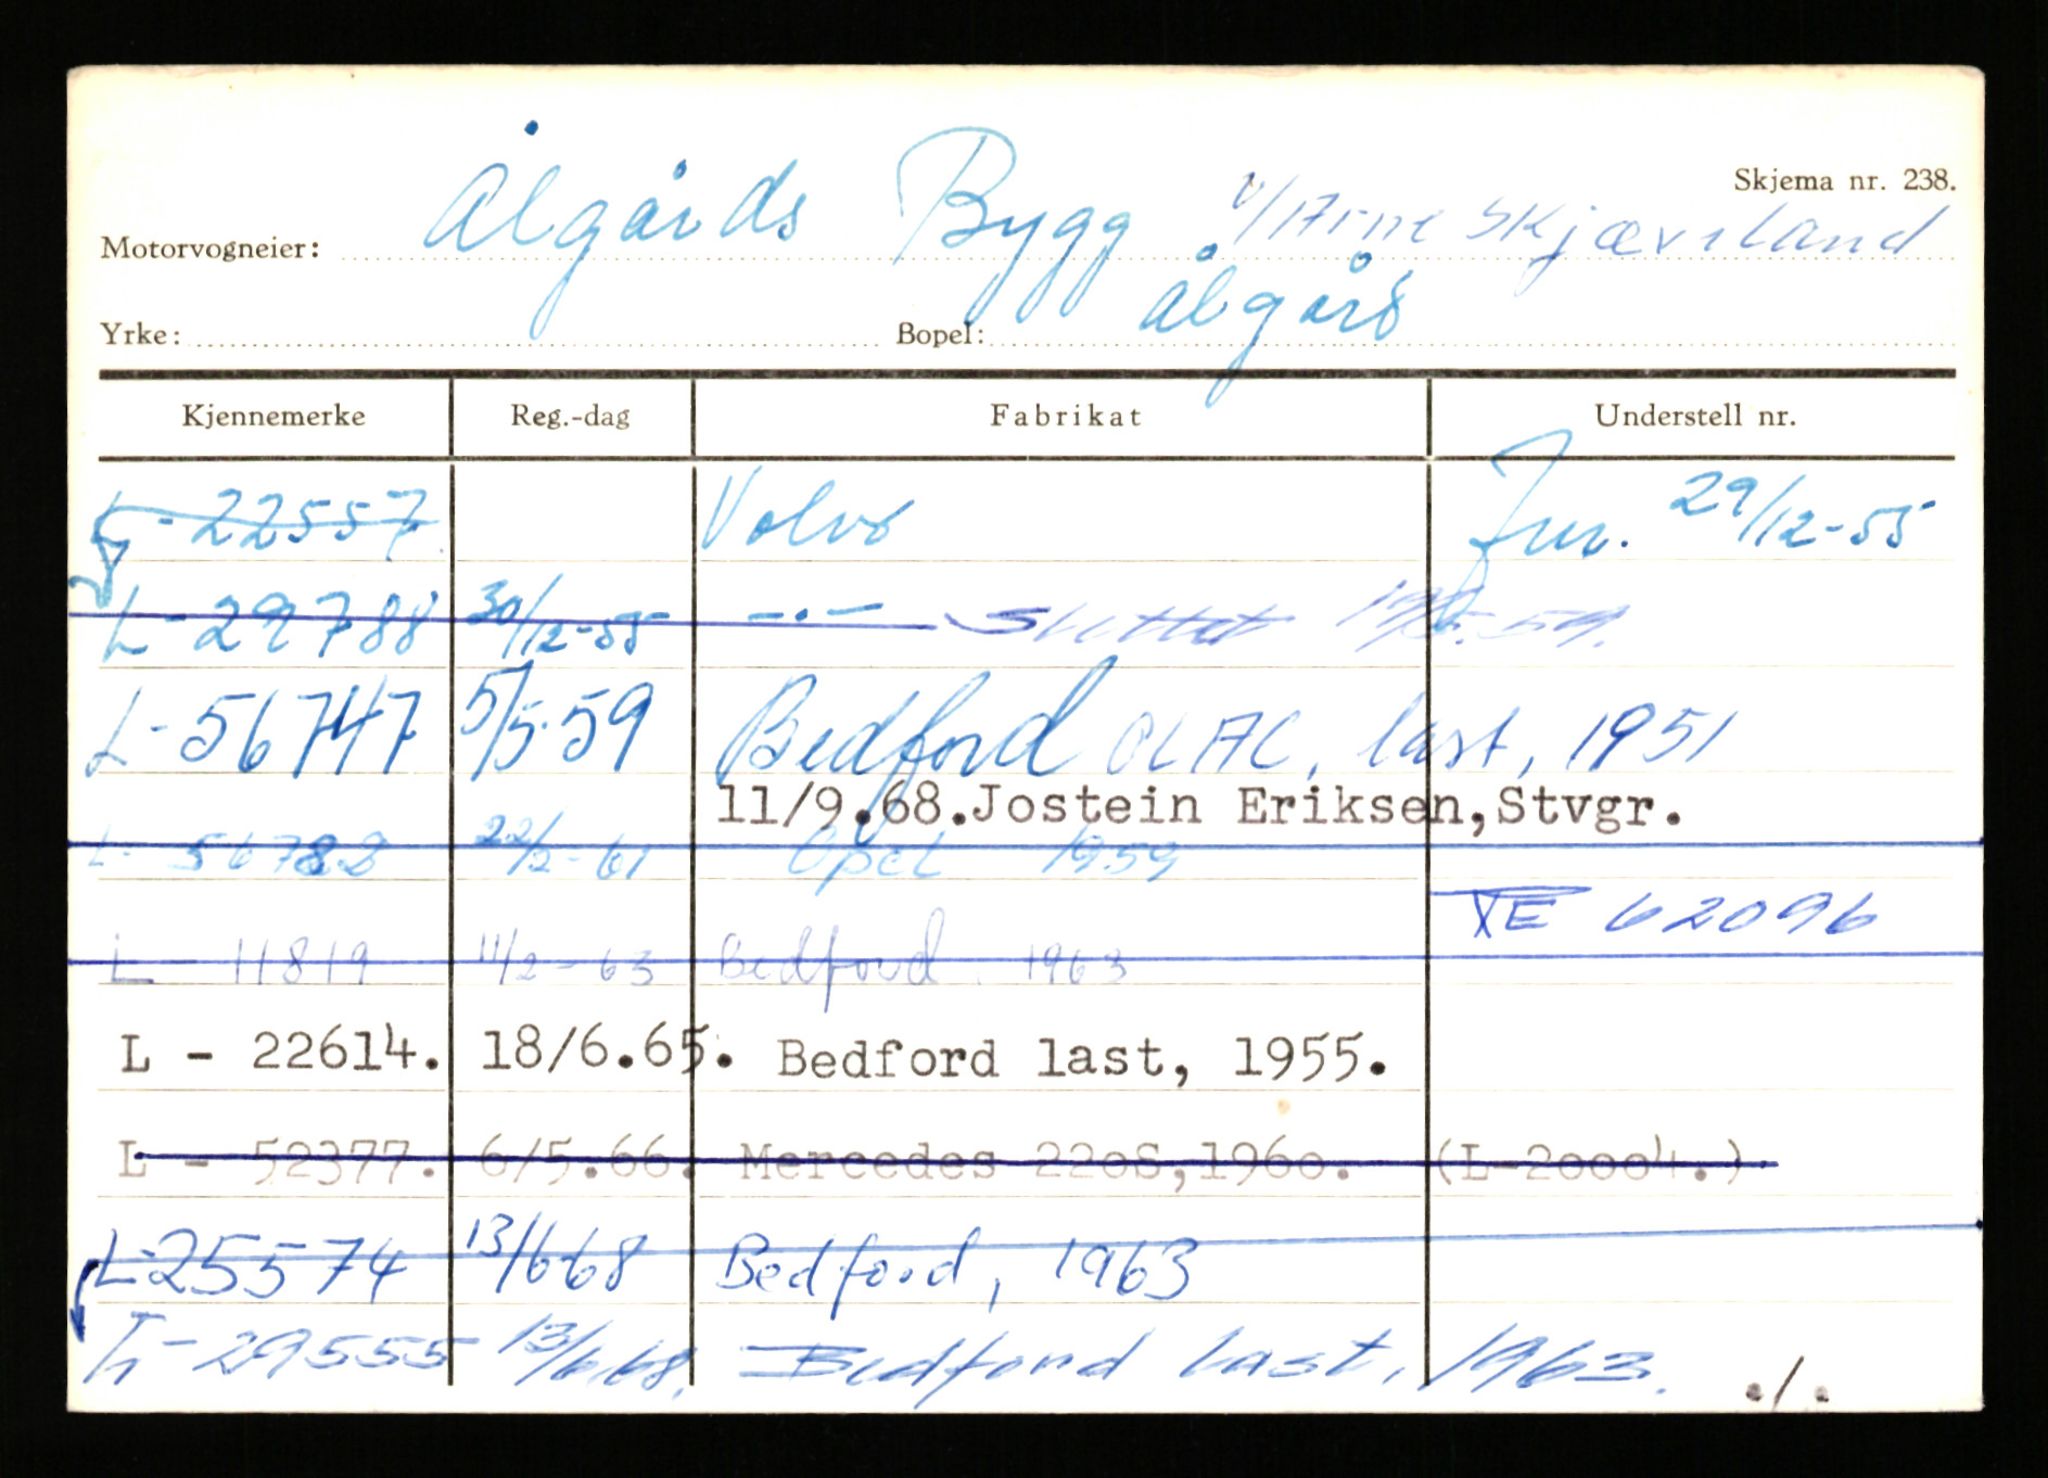 Skjema nr. 238.
Motorvogneier: Ålgårds Bygg v/Arne Skjæveland
Yrke: Bopel: Ålgård
Kjennemerke Reg.-dag Fabrikat Understell nr.
L-22557 Volvo 29/12-55
L-29788 30/12-55 -·- Slettet
L-56747 5/5-59 Bedford OLAC, last, 1951
11/9.68.Jostein Eriksen,Stvgr.
L-56788 22/2-61 Opel 1959
VE 62096
L 11819 11/2-63 Bedford 1963
L - 22614. 18/6.65. Bedford last, 1955.
L - 52377. 6/5.66. Mercedes 22oS,196o. (L-2ooo4.)
L-25574 13/6 68 Bedford, 1963
L-29555 13/6 68. Bedford last, 1963. ./.